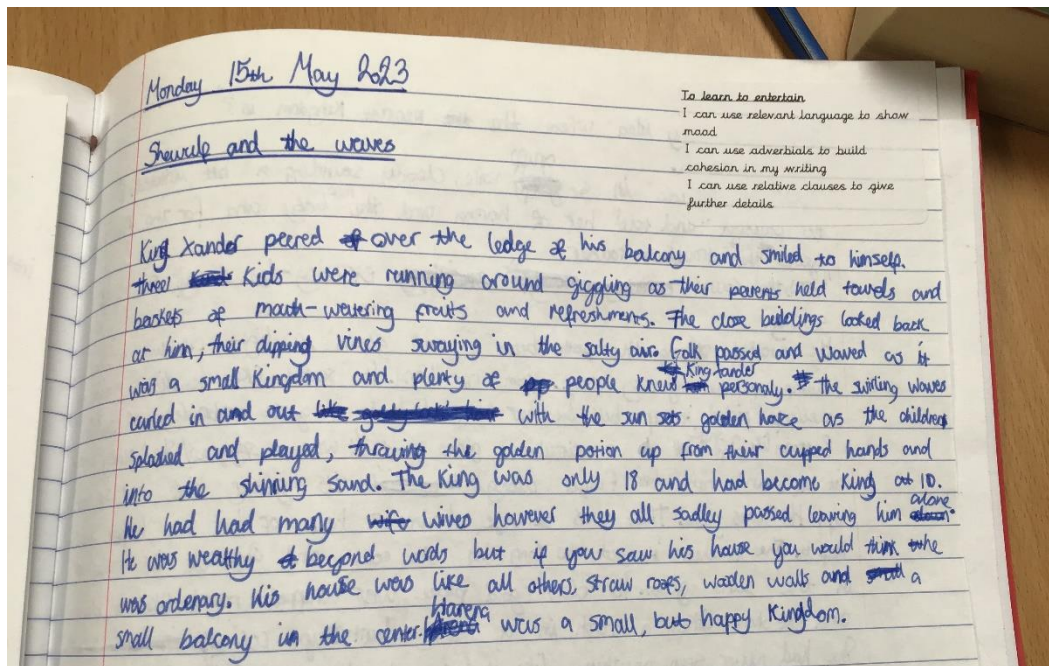 Monday 15th May 2023
To learn to entertain
I can use relevant language to show
mood
I can use adverbials to build
cohesion in my writing
I can use relative clauses to give
further details
and the waves
King Xander peered over the ledge of his balcony and smiled to himself.
three Kids were running around giggling as their parents held towels and
baskets of mouth-watering fruits and refreshments. The close buildings looked back
at him, their dipping vines swaying in the salty air. Folk passed and waved as it
was a small Kingdom and plenty of people knew King Xander personaly. the swirling waves
curled in and out with the sun sets golden haze as the children
splashed and played, throwing the golden potion up from their cupped hands and
into the shinning sand. The King was only 18 and had become King at 10.
He had had many wives however they all sadley passed leaving him alone.
He was wealthy beyond words but if you saw his house you would think he
was ordenary. His house was like all others, straw roofs, wooden walls and a
small balcony in the center. Harena was a small, but happy Kingdom.